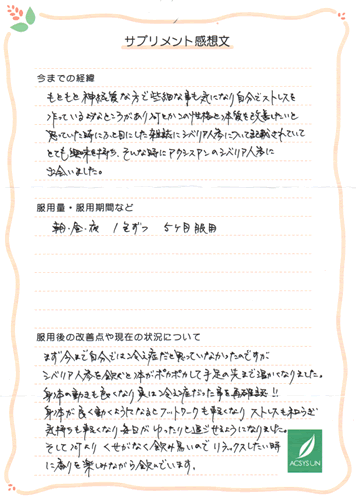 サプリメント感想文
今までの経緯
もともと神経質な方で些細な事も気になり自分でストレスを
作っているようなところがあり何とかこの性格と体質を改善したいと
思っていた時にふと目にした雑誌にシベリア人参について記載されていて
とても興味を持ち、そんな時にアクシスアンのシベリア人参に
出会いました。
服用量・服用期間など
朝・昼・夜 1包ずつ 5ヶ月服用
服用後の改善点や現在の状況について
まず今まで自分では冷え症だと思っていなかったのですが
シベリア人参を飲むと体がポカポカして手足の先まで温かくなりました。
身体の動きも良くなり実は冷え症だった事を再確認!!
身体が良く動くようになるとフットワークも軽くなりストレスも和らぎ
気持ちも軽くなり毎日がゆったりと過ごせるようになりました。
そして何よりくせがなく飲み易いのでリラックスしたい時
に香りを楽しみながら飲んでいます。
ACSYS UN